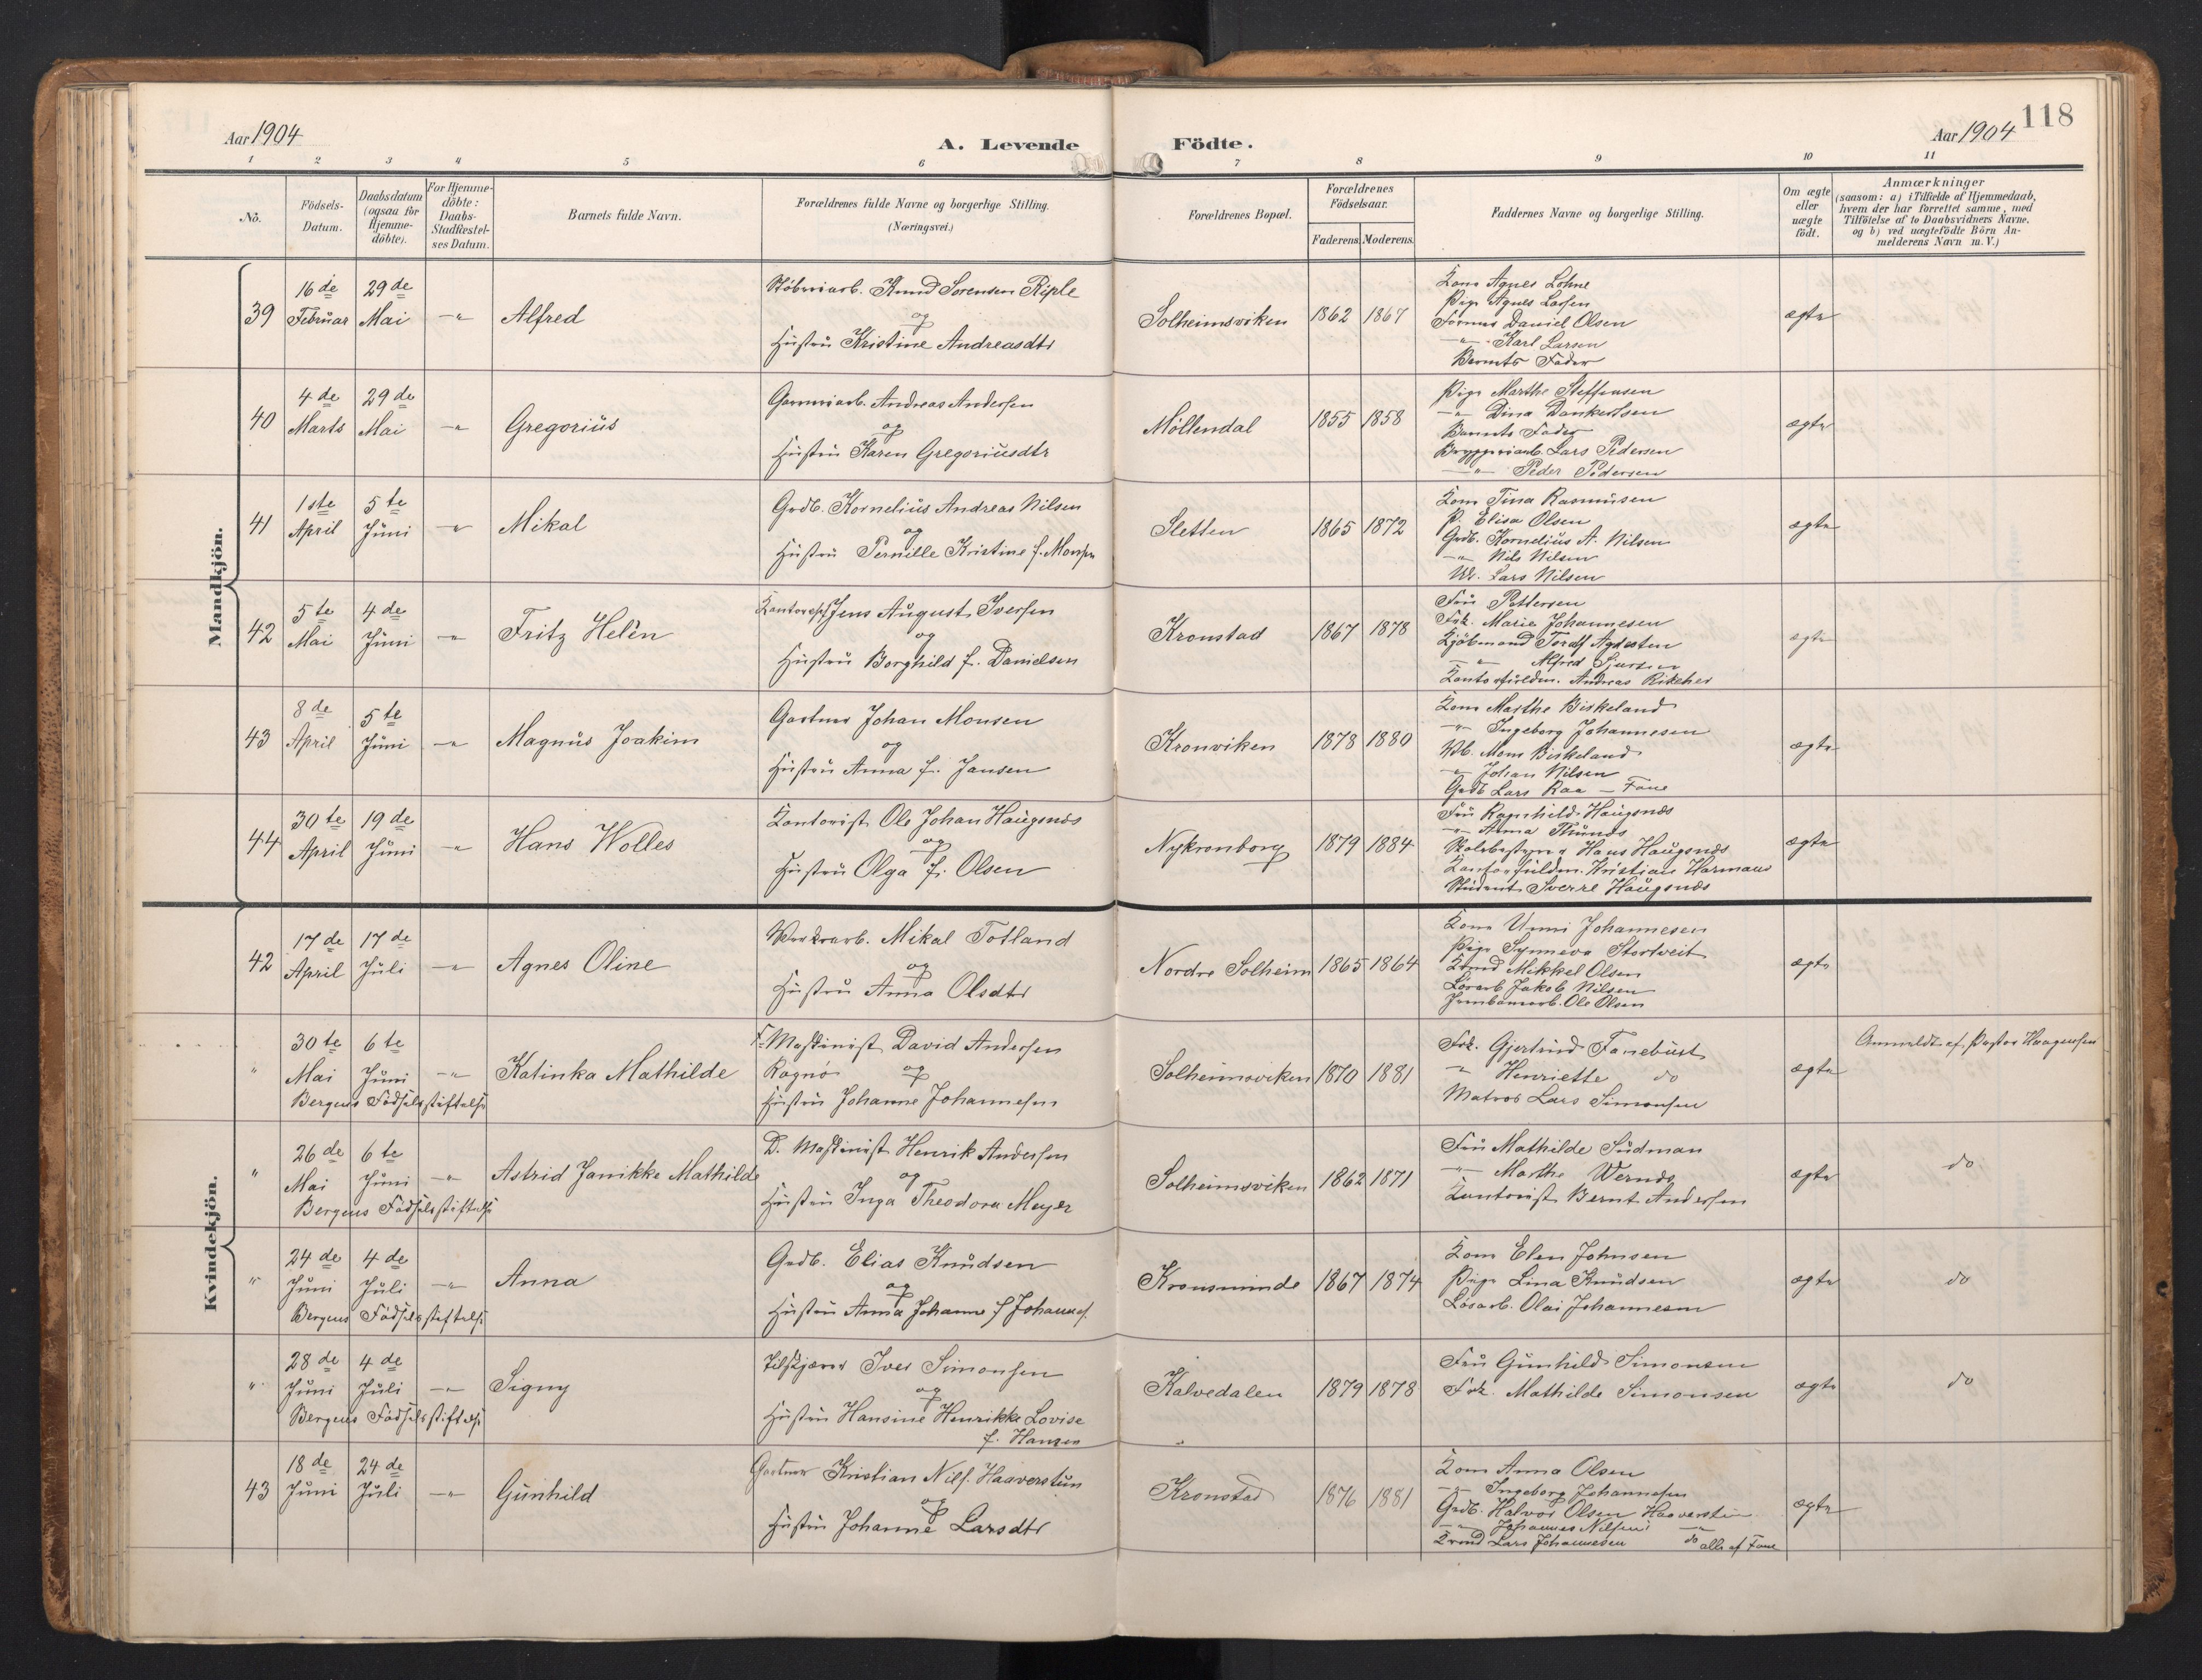 118
Aar 1904
A. Levende Födte.
Aar 1904
1 2 3 4 5 6 7 8 9 10 11
No.
Födsels-Datum.
Daabsdatum (ogsaa for Hjemme-döbte).
For Hjemme-döbte: Daabs-Stadfæstel-ses Datum.
Barnets fulde Navn.
Forældrenes fulde Navne og borgerlige Stilling.
(Næringsvei.)
Forældrenes Bopæl.
Forældrenes Födselsaar.
Faderens. Moderens.
Faddernes Navne og borgerlige Stilling.
Om ægte eller uægte födt.
Anmærkninger
(saasom: a) i Tilfælde af Hjemmedaab,
hvem der har forrettet samme, med
Tilföielse af to Daabsvidners Navne.
og b) ved uægtefödte Börn An-
melderens Navn m. V.)
Mandkjön.
39 16de Februar 29de Mai -"- Alfred
Knud Sorensen Riple
og
Hustru Kristine Andreasdtr
Solheimsviken 1862 1867
Kone Agnes Lohne
Pige Agnes Larsen
Daniel Olsen
-"- Karl Larsen
Barnets Fader
ægte
40 4de Marts 29de Mai -"- Gregorius
Andreas Andersen
og
Hustru Karen Gregoriusdtr
Möllendal 1855 1858
Pige Marthe Steffensen
-"- Dina Dankertsen
Barnets Fader
Bryggeriarb. Lars Pedersen
-"- Peder Pedersen
ægte
41 1ste April 5te Juni -"- Mikal
Grdb. Kornelius Andreas Nilsen
og
Hustru Pernille Kristine f. Monsen
Sletten 1865 1872
Kone Tina Rasmussen
P. Elisa Olsen
Grdb. Kornelius A. Nilsen
-"- Nils Nilsen
Uk. Lars Nilsen
ægte
42 5te Mai 4de Juni -"- Fritz Helén
Jens August Iversen
og
Hustru Borghild f. Danielsen
Kronstad 1867 1878
Fru Pettersen
Frk. Marie Johannesen
Kjöbmand Toralf Agdesten
-"- Alfred
Kontorfuldm. Andreas
ægte
43 8de April 5te Juni -"- Magnus Joakim
Gartner Johan Monsen
og
Hustru Anna f. Jansen
Kronviken 1878 1880
Kone Marthe Birkeland
-"- Ingeborg Johannesen
Mons Birkeland
-"- Johan Nilsen
Grdb Lars Raa - Fane
ægte
44 30te April 19de Juni -"- Hans Wolles
Kontorist Ole Johan Haugsnæs
og
Hustru Olga f. Olsen
Nykronborg 1879 1884
Fru Ragnhild Haugsnæs
-"- Anna Thunæs
Skolebestyrer Hans Haugsnæs
Kontorfuldm. Kristian Harmans
Student Sverre Haugsnæs
ægte
Kvindekjön.
42 17de April 17de Juli -"- Agnes Oline
Mikal Totland
og
Hustru Anna Olsdtr
Nordre Solheim 1865 1864
Kone Unni Johannesen
Pige Synneva Stortveit
Mikkel Olsen
Lösarb Jakob Nilsen
Jernbanearb. Ole Olsen
ægte
" 30te Mai 6te Juni -"- Katinka Mathilde
Bergens Födselsstiftelse
F. Maskinist David Andersen
Ragnö og
Hustru Johanne Johannesen
Solheimsviken 1870 1881
Frk. Gjertrud Fanebust
-"- Henriette do
Matros Lars Simonsen
ægte
Anmeldt af Pastor Haagensen
" 26de Mai 6te Juni -"- Astrid Janikke Mathilde
Bergens Födselsstiftelse
D. Maskinist Henrik Andersen
og
Hustru Inga Theodora Meyer
Solheimsviken 1862 1871
Fru Mathilde Sudman
-"- Marthe Wernes
Kontorist Bernt Andersen
ægte
do
" 24de Juni 4de Juli -"- Anna
Bergens Födselsstiftelse
Grdb. Elias Knudsen
og
Hustru Anna Johanne f Johannes.
Kronsminde 1867 1874
Kone Elen Johnsen
Pige Lina Knudsen
Lösarb. Olai Johannesen
ægte
do
" 28de Juni 4de Juli -"- Signy
Bergens Födselsstiftelse
Tilskjærer Iver Simonsen
og
Hustru Hansine Henrikke Lovise
f. Hansen
Kalvedalen 1879 1878
Fru Gunhild Simonsen
Frk. Mathilde Simonsen
ægte
do
43 18de Juni 24de Juli -"- Gunhild
Gartner Kristian Nils. Haaverstun
og
Hustru Johanne Larsdtr
Kronstad 1876 1881
Kone Anna Olsen
-"- Ingeborg Johannesen
Grdb. Halvor Olsen Haaverstun
-"- Johannes Nilsen -"-
Lars Johannesen do alle af Fane
ægte